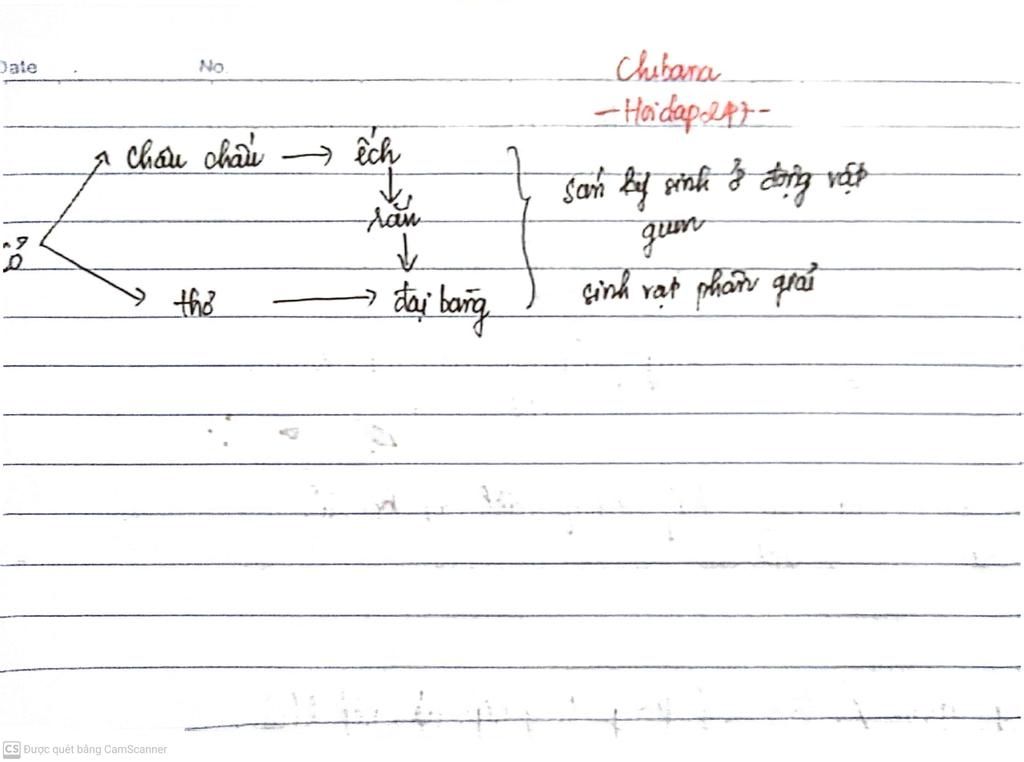 Date No.
Chibana
-Hoidap247-
châu chấu → ếch
↓
rắn
↓
thỏ → đại bàng
sán ký sinh ở động vật
giun
sinh vật phân giải
CS Được quét bằng CamScanner